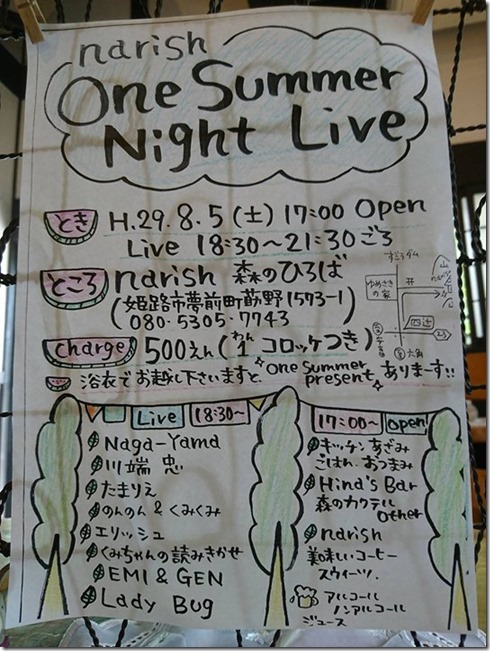 narish
One Summer
Night Live
とき H.29.8.5(土) 17:00 Open
Live 18:30〜21:30ごろ
ところ narish 森のひろば
(姫路市夢前町莇野1573-1)
080-5305-7743
charge 500えん(わん1コロッケつき)
浴衣でお越し下さいますと、One Summer present ありまーす!!
ゆめさきの家
四辻
Live 18:30〜
Naga-Yama
川端 忠
たまりえ
のんのん & くみくみ
エリッシュ
くみちゃんの読みきかせ
EMI & GEN
Lady Bug
17:00〜 Open
キッチンあざみ
ごはん、おつまみ
Hina's Bar
森のカクテル
other
narish
美味しいコーヒー
スウィーツ.
アルコール
ノンアルコール
ジュース